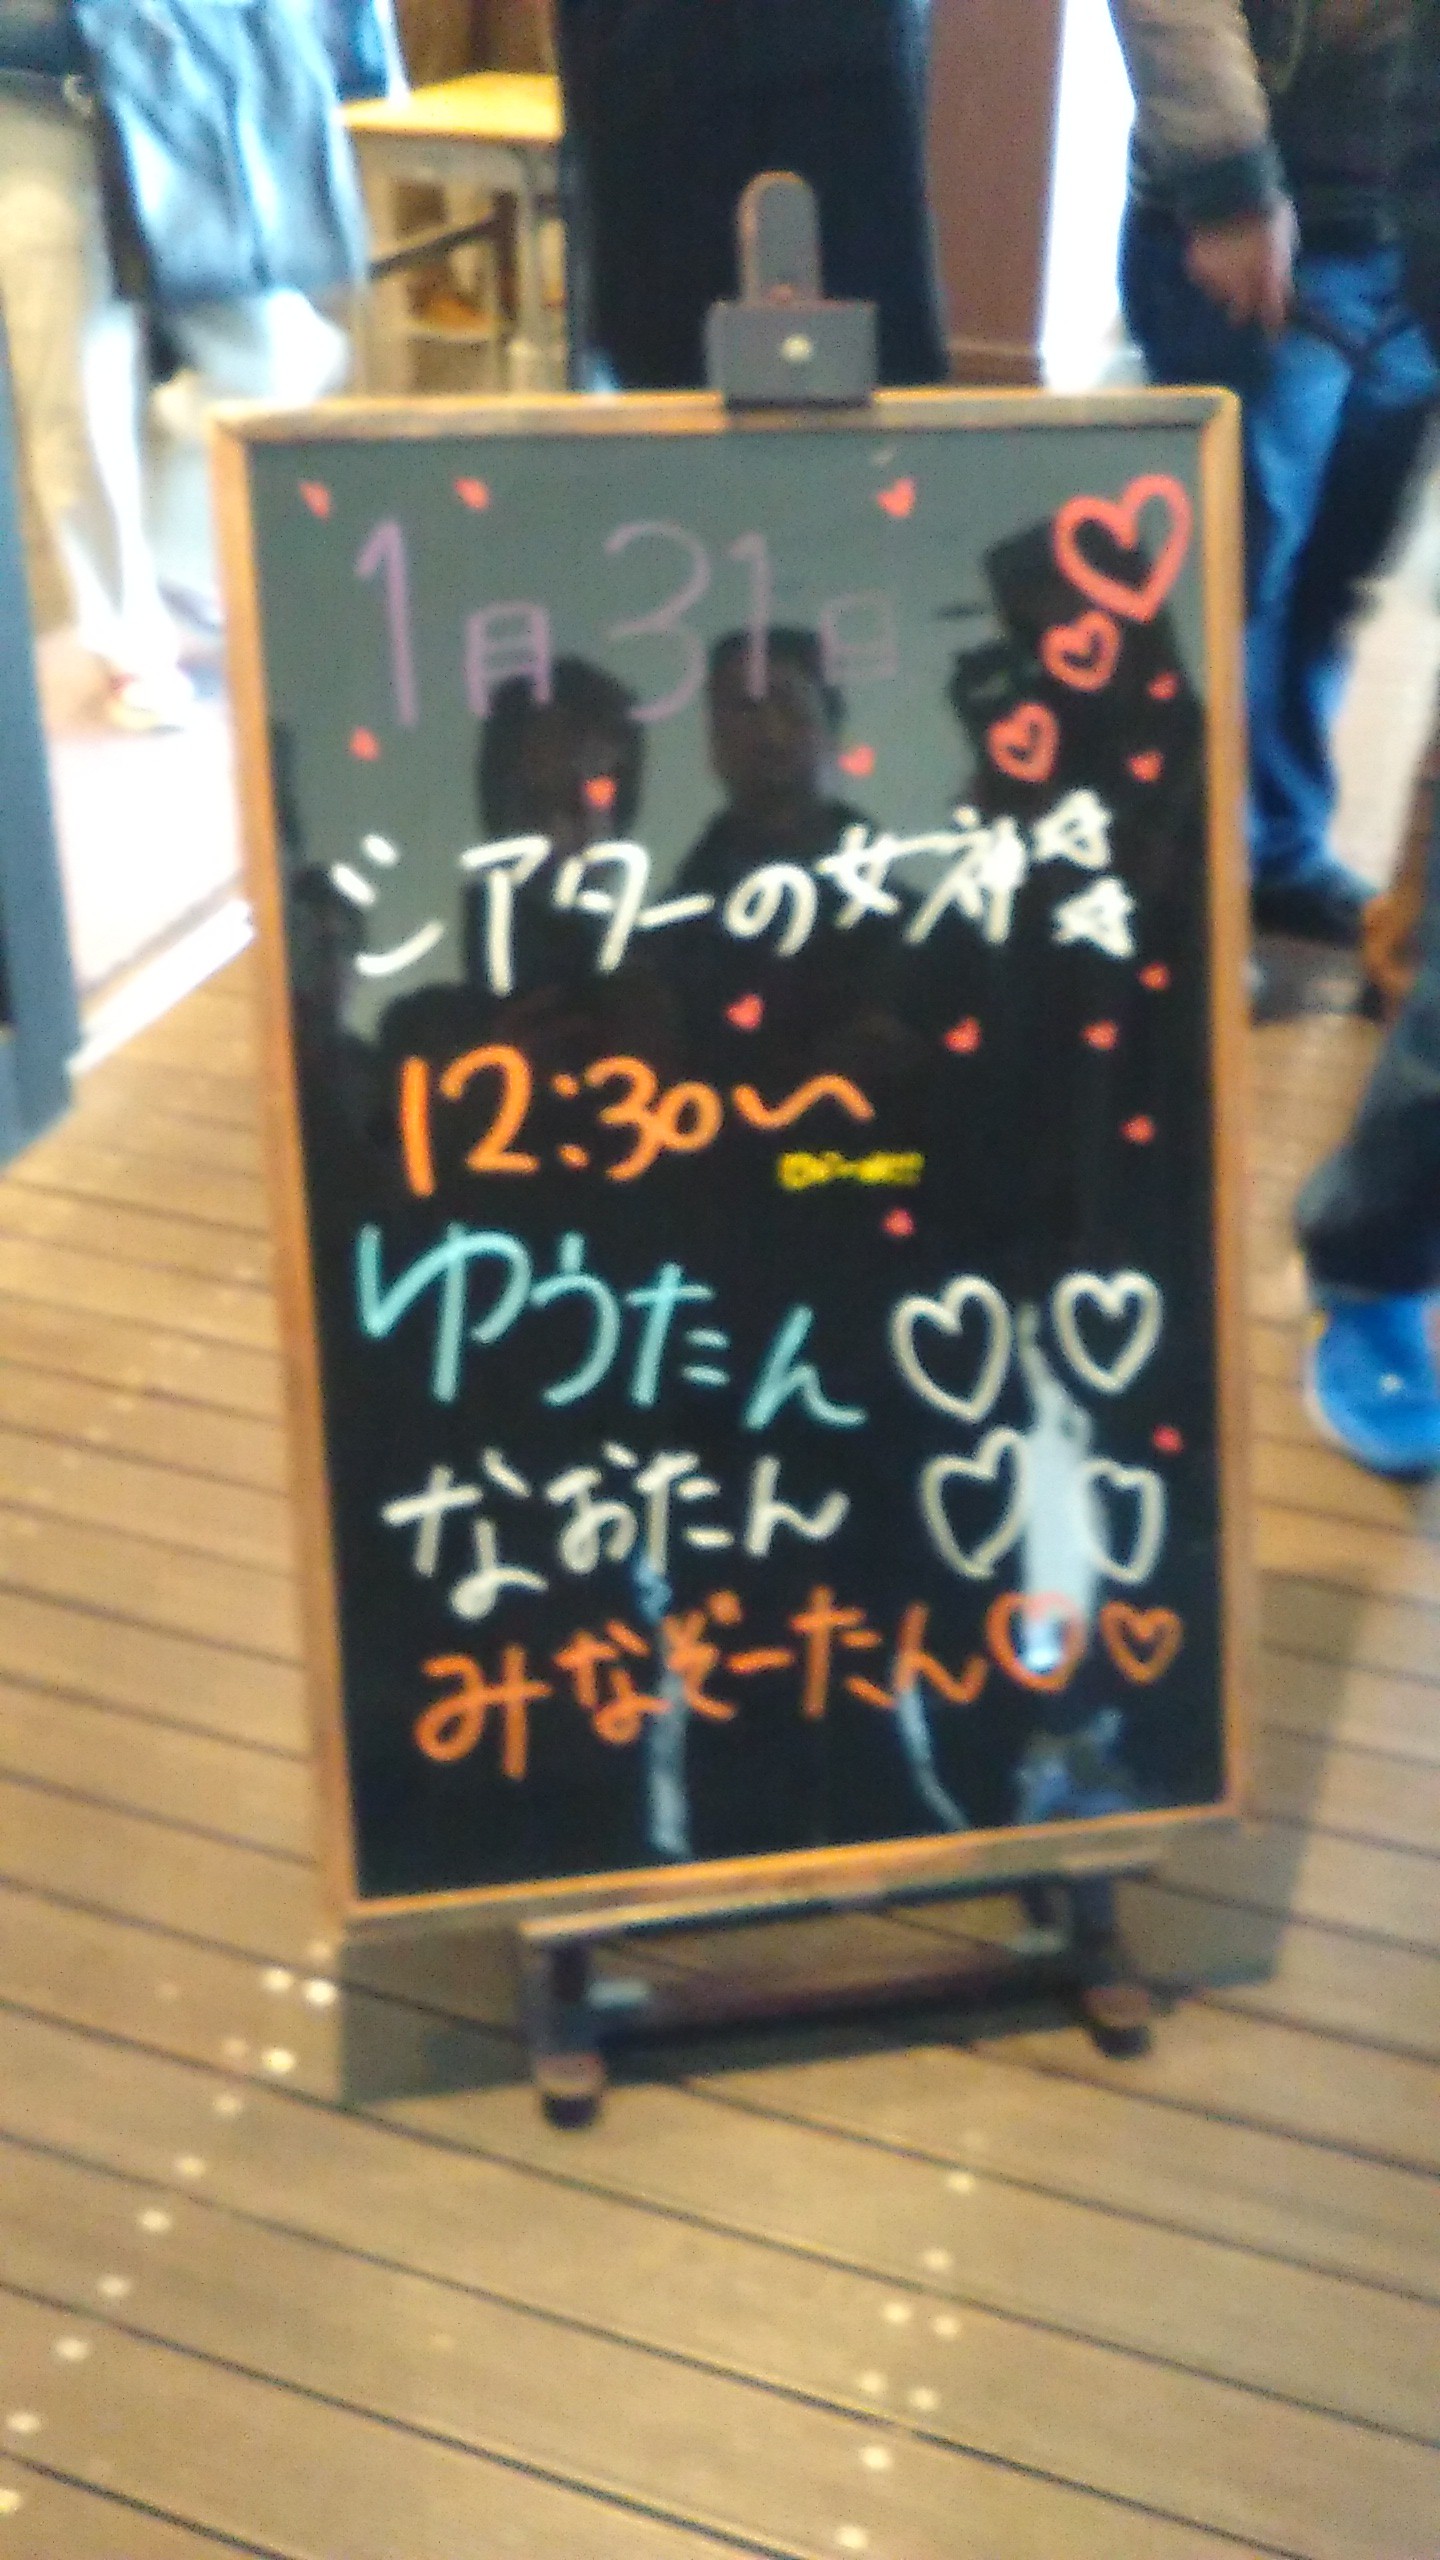 1月31日
シアターの女神☆☆
12:30〜
ゆうたん♡♡
なおたん♡♡
みなぞーたん♡♡